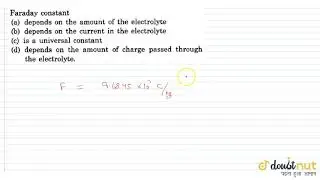 Faraday constant
(a) depends on the amount of the electrolyte
(b) depends on the current in the electrolyte
(c) is a universal constant
(d) depends on the amount of charge passed through
the electrolyte.
F =
doubtnut
पढ़ना हुआ आसान